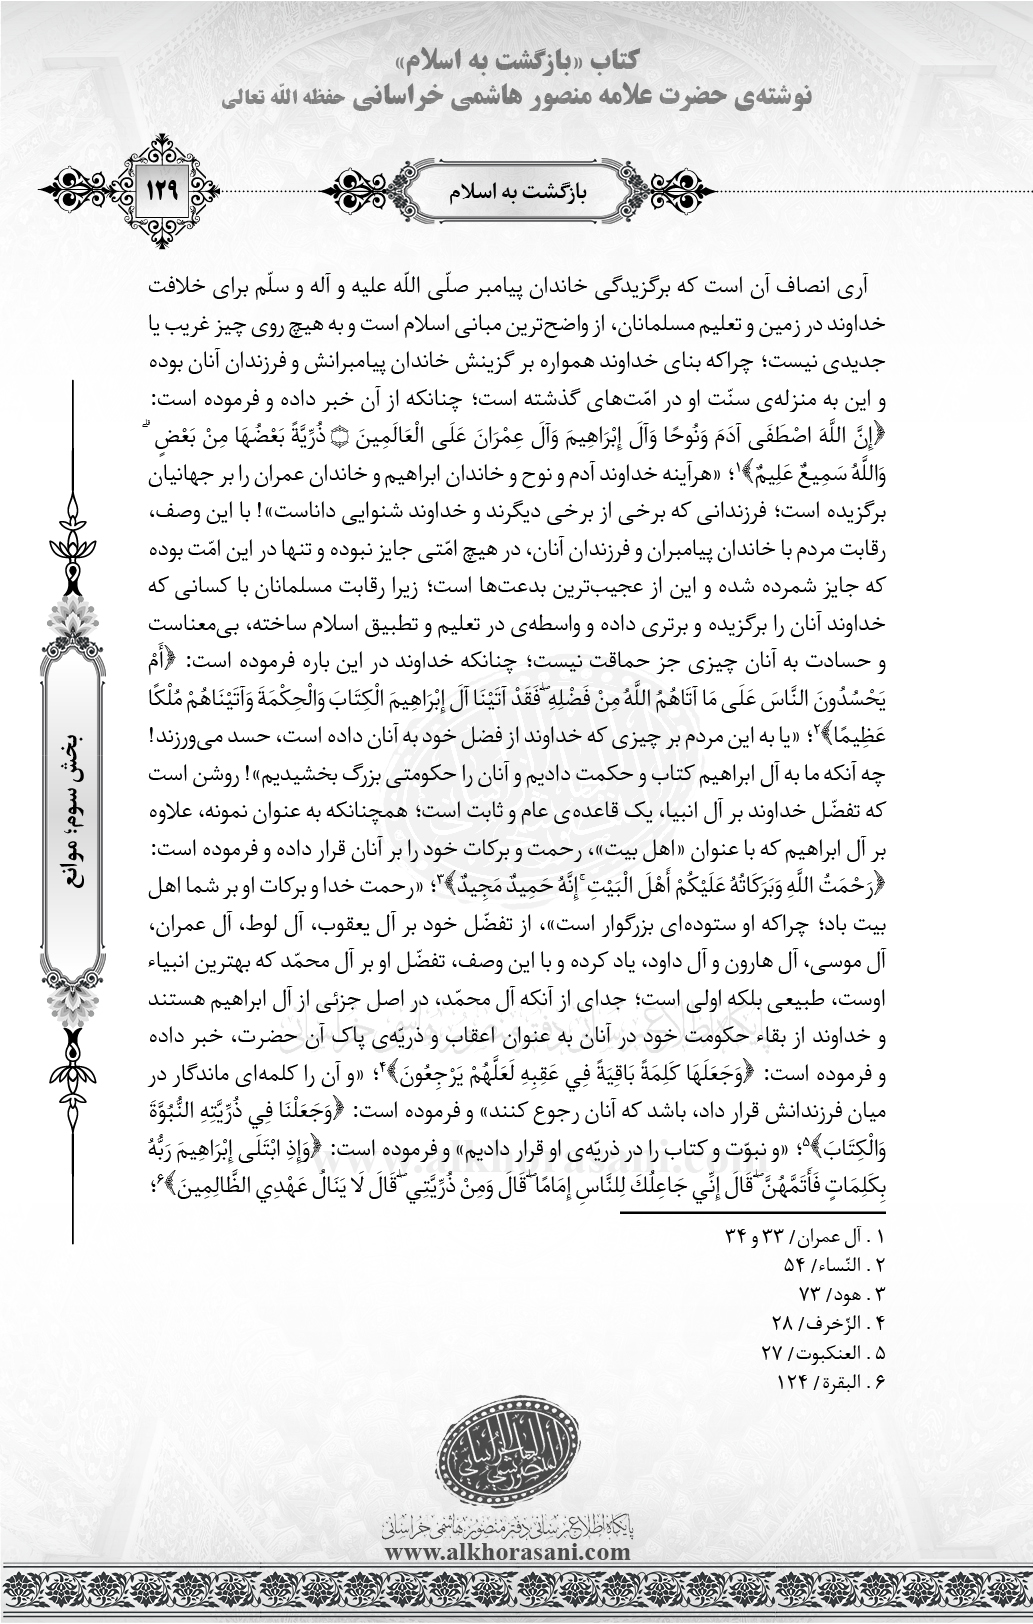 کتاب «بازگشت به اسلام»
نوشته‌ی حضرت علامه منصور هاشمی خراسانی حفظه الله تعالی
بازگشت به اسلام
۱۲۹
آری انصاف آن است که برگزیدگی خاندان پیامبر صلّی الله علیه و آله و سلّم برای خلافت
خداوند در زمین و تعلیم مسلمانان، از واضح‌ترین مبانی اسلام است و به هیچ روی چیز غریب یا
جدیدی نیست؛ چراکه بنای خداوند همواره بر گزینش خاندان پیامبرانش و فرزندان آنان بوده
و این به منزله‌ی سنّت او در امّت‌های گذشته است؛ چنانکه از آن خبر داده و فرموده است:
﴿إِنَّ اللَّهَ اصْطَفَى آدَمَ وَنُوحًا وَآلَ إِبْرَاهِيمَ وَآلَ عِمْرَانَ عَلَى الْعَالَمِينَ ۝ ذُرِّيَّةً بَعْضُهَا مِنْ بَعْضٍ ۗ
وَاللَّهُ سَمِيعٌ عَلِيمٌ﴾۱؛ «هرآینه خداوند آدم و نوح و خاندان ابراهیم و خاندان عمران را بر جهانیان
برگزیده است؛ فرزندانی که برخی از برخی دیگرند و خداوند شنوایی داناست»! با این وصف،
رقابت مردم با خاندان پیامبران و فرزندان آنان، در هیچ امّتی جایز نبوده و تنها در این امّت بوده
که جایز شمرده شده و این از عجیب‌ترین بدعت‌ها است؛ زیرا رقابت مسلمانان با کسانی که
خداوند آنان را برگزیده و برتری داده و واسطه‌ی در تعلیم و تطبیق اسلام ساخته، بی‌معناست
و حسادت به آنان چیزی جز حماقت نیست؛ چنانکه خداوند در این باره فرموده است: ﴿أَمْ
يَحْسُدُونَ النَّاسَ عَلَى مَا آتَاهُمُ اللَّهُ مِنْ فَضْلِهِ ۖ فَقَدْ آتَيْنَا آلَ إِبْرَاهِيمَ الْكِتَابَ وَالْحِكْمَةَ وَآتَيْنَاهُمْ مُلْكًا
عَظِيمًا﴾۲؛ «یا به این مردم بر چیزی که خداوند از فضل خود به آنان داده است، حسد می‌ورزند!
چه آنکه ما به آل ابراهیم کتاب و حکمت دادیم و آنان را حکومتی بزرگ بخشیدیم»! روشن است
که تفضّل خداوند بر آل انبیا، یک قاعده‌ی عام و ثابت است؛ همچنانکه به عنوان نمونه، علاوه
بر آل ابراهیم که با عنوان «اهل بیت»، رحمت و برکات خود را بر آنان قرار داده و فرموده است:
﴿رَحْمَتُ اللَّهِ وَبَرَكَاتُهُ عَلَيْكُمْ أَهْلَ الْبَيْتِ ۚ إِنَّهُ حَمِيدٌ مَجِيدٌ﴾۳؛ «رحمت خدا و برکات او بر شما اهل
بیت باد؛ چراکه او ستوده‌ای بزرگوار است»، از تفضّل خود بر آل یعقوب، آل لوط، آل عمران،
آل موسی، آل هارون و آل داود، یاد کرده و با این وصف، تفضّل او بر آل محمّد که بهترین انبیاء
اوست، طبیعی بلکه اولی است؛ جدای از آنکه آل محمّد، در اصل جزئی از آل ابراهیم هستند
و خداوند از بقاء حکومت خود در آنان به عنوان اعقاب و ذریّه‌ی پاک آن حضرت، خبر داده
و فرموده است: ﴿وَجَعَلَهَا كَلِمَةً بَاقِيَةً فِي عَقِبِهِ لَعَلَّهُمْ يَرْجِعُونَ﴾۴؛ «و آن را کلمه‌ای ماندگار در
میان فرزندانش قرار داد، باشد که آنان رجوع کنند» و فرموده است: ﴿وَجَعَلْنَا فِي ذُرِّيَّتِهِ النُّبُوَّةَ
وَالْكِتَابَ﴾۵؛ «و نبوّت و کتاب را در ذریّه‌ی او قرار دادیم» و فرموده است: ﴿وَإِذِ ابْتَلَى إِبْرَاهِيمَ رَبُّهُ
بِكَلِمَاتٍ فَأَتَمَّهُنَّ ۖ قَالَ إِنِّي جَاعِلُكَ لِلنَّاسِ إِمَامًا ۖ قَالَ وَمِنْ ذُرِّيَّتِي ۖ قَالَ لَا يَنَالُ عَهْدِي الظَّالِمِينَ﴾۶؛
۱ . آل عمران/ ۳۳ و ۳۴
۲ . النّساء/ ۵۴
۳ . هود/ ۷۳
۴ . الزّخرف/ ۲۸
۵ . العنکبوت/ ۲۷
۶ . البقرة/ ۱۲۴
بخش سوم؛ موانع
پایگاه اطلاع‌رسانی دفتر منصور هاشمی خراسانی
www.alkhorasani.com